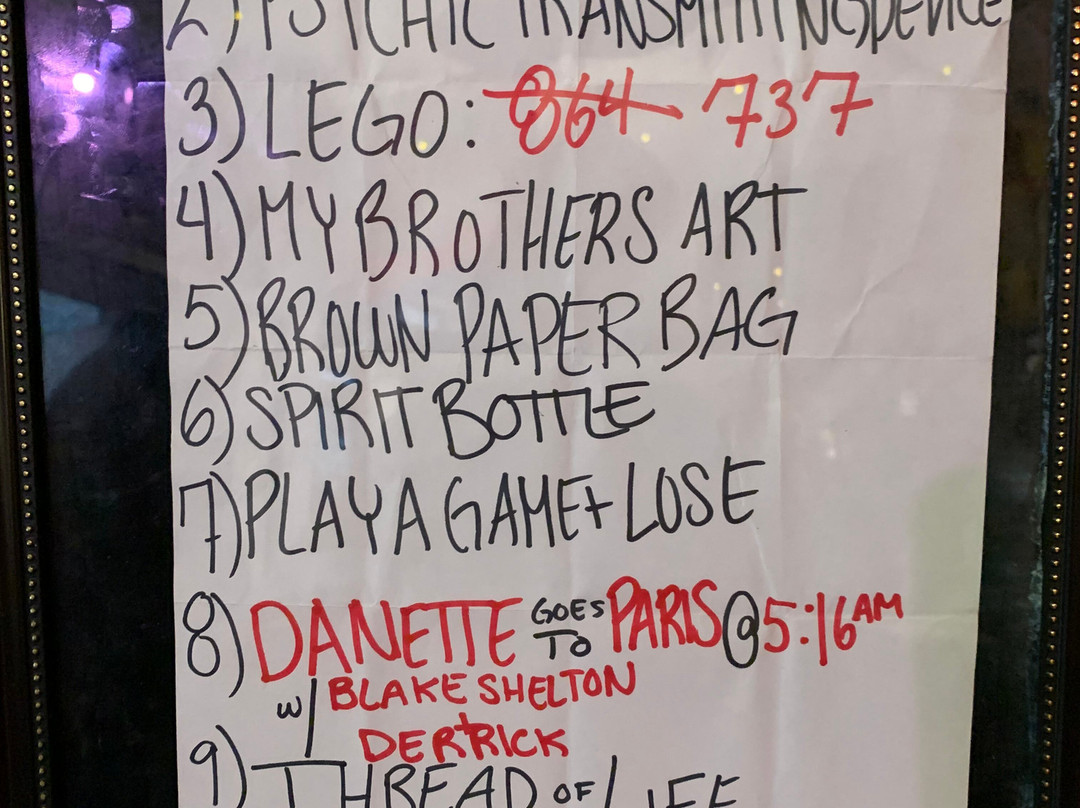 2) PSYCHIC TRANSMITTING DEVICE
3) LEGO: 864 737
4) MY BROTHERS ART
5) BROWN PAPER BAG
6) SPIRIT BOTTLE
7) PLAY A GAME + LOSE
8) DANETTE GOES TO PARIS @ 5:16 AM
w/ BLAKE SHELTON
+
DERRICK
9) THREAD OF LIFE